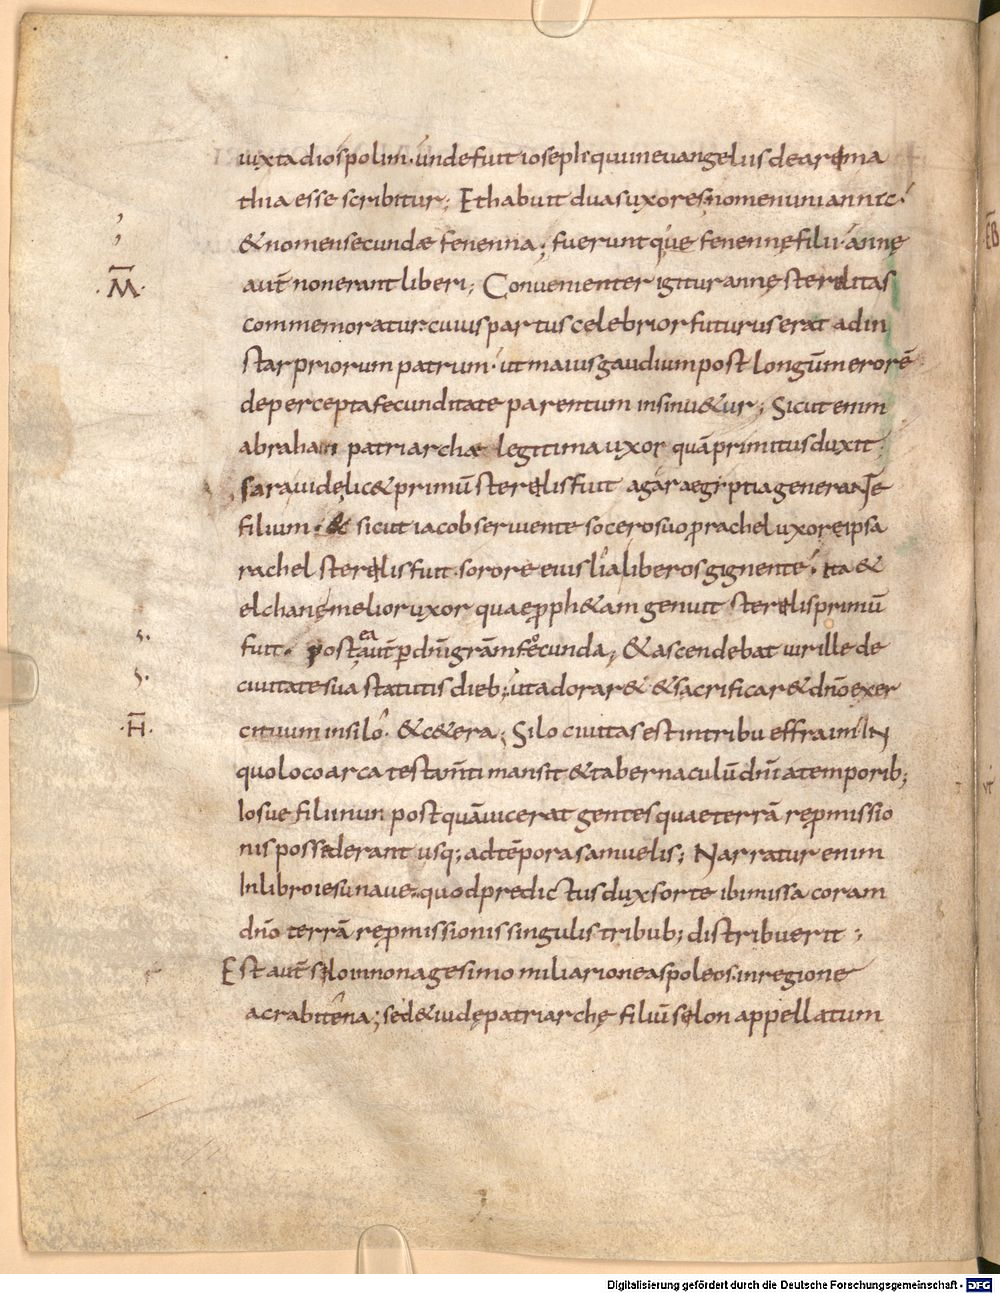 iuxta diospolim · unde fuit ioseph qui in euangeliis de arima
thia esse scribitur; Et habuit duas uxores nomen uni anne
& nomen secundae fenenna; fueruntque fenennę filii · annę
·M̄· aut̄ non erant liberi; Conuenienter igitur annę sterilitas
commemoratur cuius partus celebrior futurus erat ad in
star priorum patrum · ut maius gaudium post longū merorē
de percepta fecunditate parentum insinu&ur; Sicut enim
abraham patriarchae legitima uxor quā primitus duxit
sara uidelic& primū sterelis fuit agar aegyptia generante
filium · & sicut iacob seruiente socero suo ꝓ rachel uxore ipsa
rachel sterelis fuit · sorore eius lia liberos gignente · ita &
elchanę melior uxor quae ꝓph&am genuit sterelis primū
fuit · postea aut̄ ꝑ dn̄i gr̄am fecunda; & ascendebat uir ille de
ciuitate sua statutis dieb; ut adorar& & sacrificar& dn̄o exer
·H̄· cituum in silo · & c&era; Silo ciuitas est in tribu effraim · IN
quo loco arca testam̄ti mansit & tabernaculū dn̄i a temporib;
Iosue filii nun postquā uicerat gentes quae terrā reꝓmissio
nis possederant usq; ad tēpora samuelis; Narratur enim
In libro iesu naue · quod predictus dux sorte ibi missa coram
dn̄o terrā reꝓmissionis singulis tribub; distribuerit;
Est aut̄ silo in nonagesimo miliario neaspoleos · in regione
acrabitena; sed & iudę patriarchę filiū selon appellatum
Digitalisierung gefördert durch die Deutsche Forschungsgemeinschaft - DFG